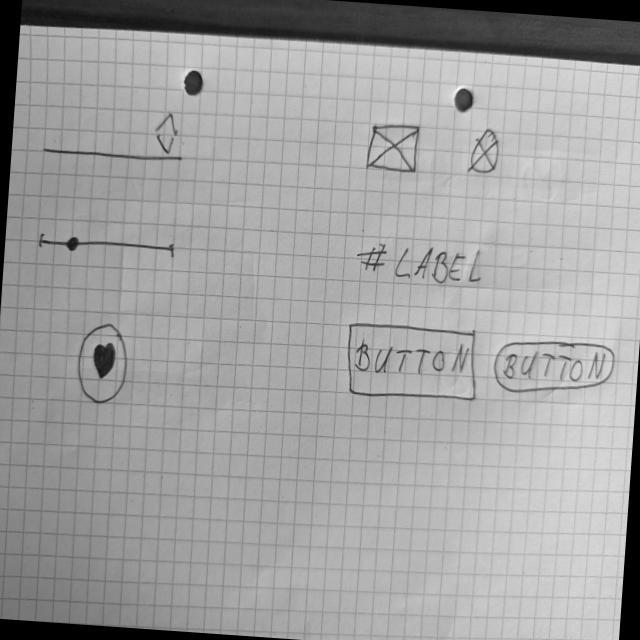 # LABEL
BUTTON
BUTTON